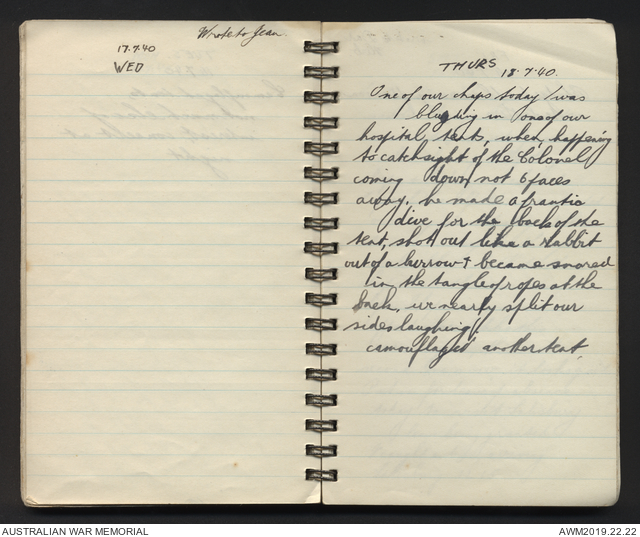 Wrote to Jean.
17.7.40
WED
THURS
18.7.40.
One of our chaps today was
bludging in one of our
hospital tents, when, happening
to catch sight of the Colonel
coming down not 6 faces
away, he made a frantic
dive for the back of the
tent, shot out like a rabbit
out of a burrow & became snared
in the tangle of ropes at the
back, we nearly split our
sides laughing.
camouflaged another tent.
AUSTRALIAN WAR MEMORIAL
AWM2019.22.22